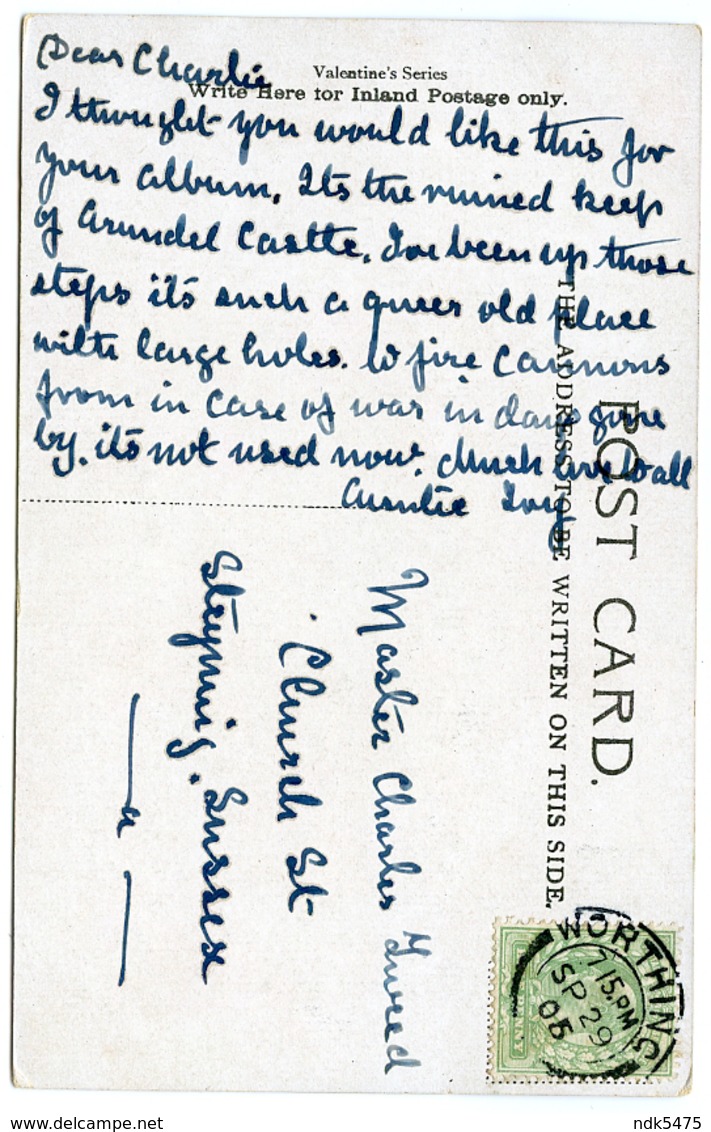 Dear Charlie
Valentine's Series
Write Here for Inland Postage only.
I thought you would like this for
your album, Its the ruined keep
of Arundel Castle, I've been up those
steps it's such a queer old place
with large holes. to fire Cannons
from in case of war in days gone
by, it's not used now. Much love to all
Auntie
POST CARD.
THE ADDRESS TO BE WRITTEN ON THIS SIDE.
Master Charles Tweed
Church St
Steyning. Sussex
WORTHING
7 15.PM
SP 29
05
ndk5475